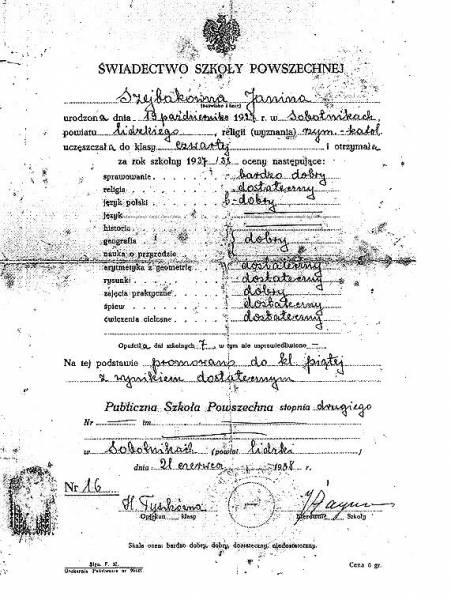 ŚWIADECTWO SZKOŁY POWSZECHNEJ
Janina
(nazwisko i imię)
urodzona dnia 13 października 1927 r. w Sobotnikach,
powiatu lidzkiego, religii (wyznania) rzym.-katol.
uczęszczała do klasy czwartej i otrzymała
za rok szkolny 1937/38 oceny następujące:
sprawowanie bardzo dobry
religia dostateczny
język polski dobry
język
historia
geografia } dobry
nauka o przyrodzie
arytmetyka z geometrią dostateczny
rysunki dostateczny
zajęcia praktyczne dobry
śpiew dostateczny
ćwiczenia cielesne dostateczny
Opuściła dni szkolnych 7, w tym nie usprawiedliwiono —
Na tej podstawie promowano do kl. piątej
z wynikiem dostatecznym
Publiczna Szkoła Powszechna stopnia drugiego
Nr im.
w Sobotnikach (powiat lidzki)
dnia 21 czerwca 1938 r.
Nr 16
H.
Opiekun klasy Kierownik Szkoły
Skala ocen: bardzo dobry, dobry, dostateczny, niedostateczny.
Cena 6 gr.